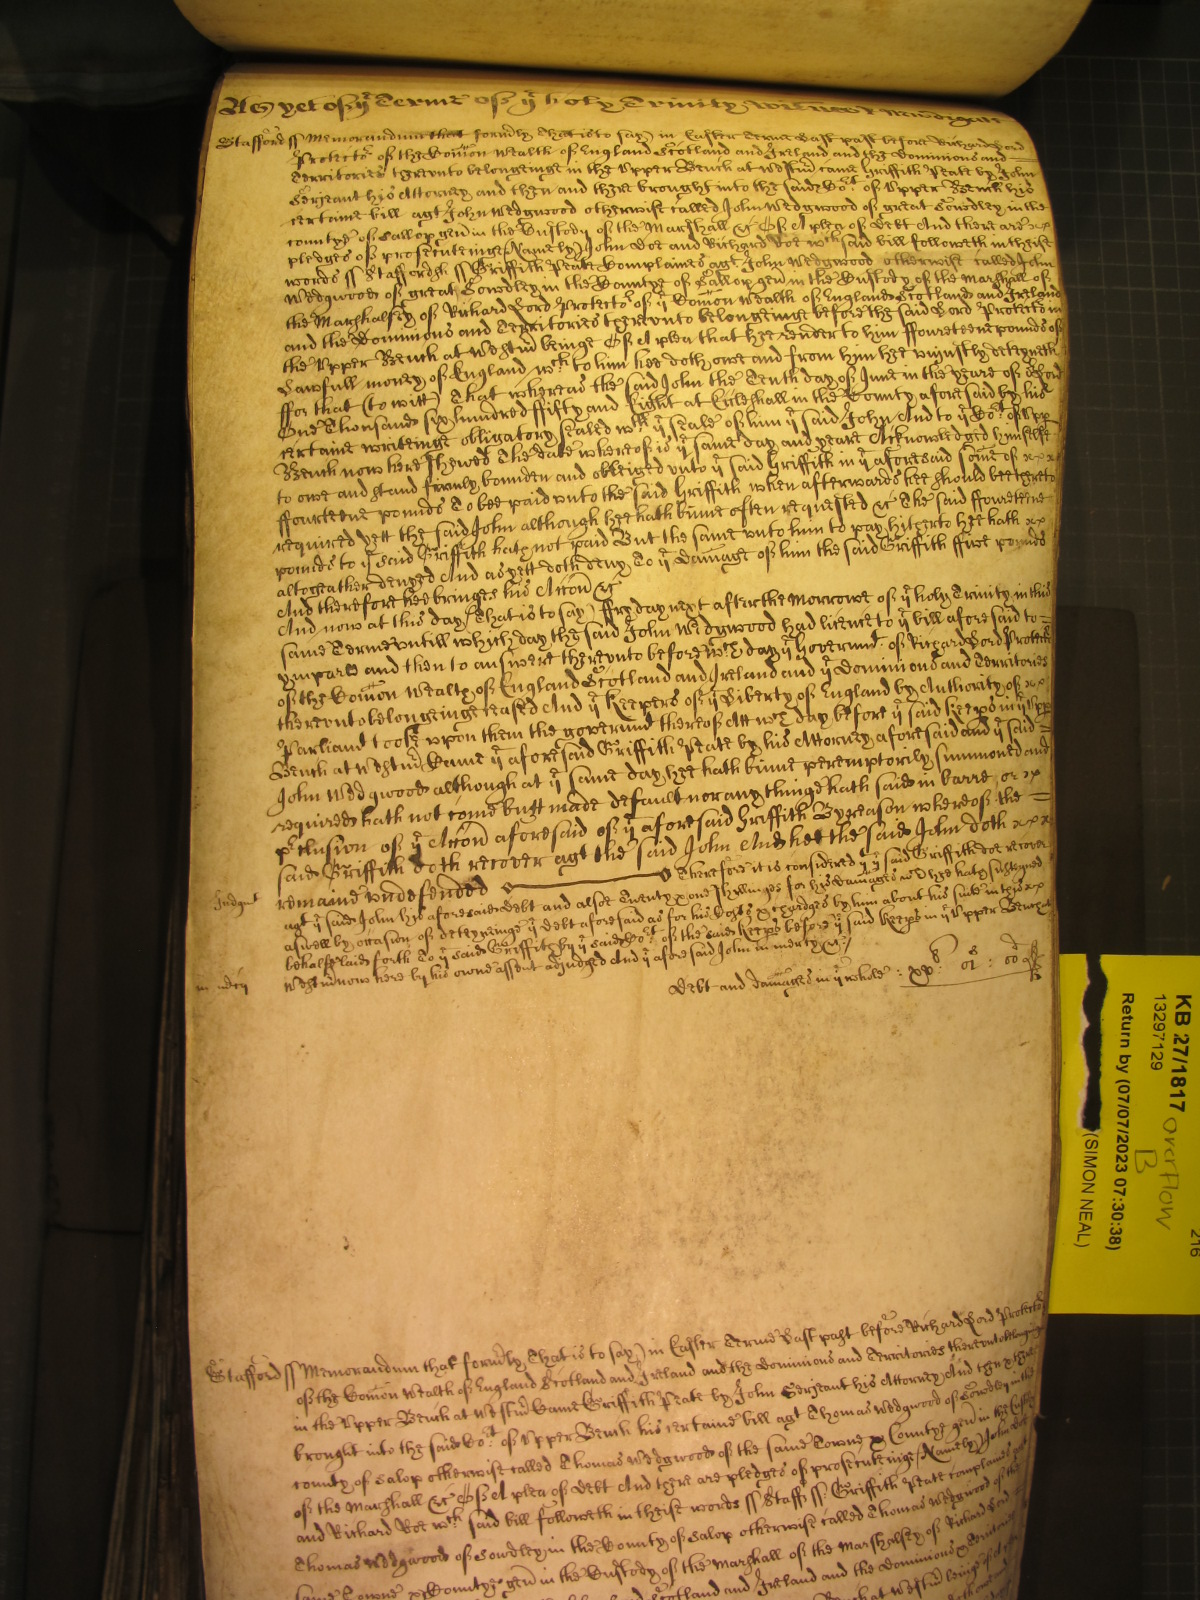 As yet of ye Terme of ye holy Trinity Witnes R Newdigate
Stafford ss Memorandum that formrly That is to say in Easter Terme Last past before Richard Lord
Protector of the Comon Wealth of England Scotland and Ireland and the Dominions and
Territories thereunto belongeinge in the Upper Bench at Westmr came Griffith Peate by John
Serjeant his Attorney and then and there brought into the said Cort of Upper Bench his
certaine bill agt John Wedgwood otherwise called John Wedgwood of great Sowdley in the
countye of Sallop gen in the Custody of the Marshall &c Of A plea of Debt And there are xx
pledges of prosecuteinge (Namely) John Doe and Richard Roe wch said bill followeth in theise
words ss Staffordsh ss Griffith Peate Complaines agt John Wedgwood otherwise called John
Wedgwood of great Sowdley in the Countye of Sallop gen in the Custody of the Marshall of
the Marshalsey of Richard Lord Protector of ye Comon Wealth of England Scotland and Ireland
and the Dominions and Territories thereunto belongeinge before the said Lord Protector in
the Upper Bench at Westmr beinge Of A plea that hee render to him ffoureteene pounds of
Lawfull money of England wch to him hee doth owe and from him hee uniustly deteyneth
ffor that (to witt) That whereas the said John the Tenth day of June in the yeare of or Lord
One Thousand six hundred ffifty and Eight at Eccleshall in the County aforesaid by his
certaine writeinge obligatory sealed wth ye seale of him ye said John And to ye Cort of Upp
Bench now here shewed The date whereof is ye same day and yeare Acknowledged himselfe
to owe and stand firmly bounden and obleiged unto ye said Griffith in ye aforesaid some of xxx
ffourteene pounds To bee paid unto the said Griffith when afterwards hee should bee thereto
required yett the said John although hee hath binne often requested &c The said ffoureteene
pounds to ye said Griffith hath not paid But the same unto him to pay hitherto hee hath xx
altogeather denyed And as yett doth deny To ye Damage of him the said Griffith ffive pounds
And therefore hee bringes his Accon &c
And now at this day (That is to say) ffryday next after the Morrowe of ye holy Trinity in this
same Terme untill which day the said John Wedgwood had licence to ye bill aforesaid to
ymparle and then to answere thereunto before wch day ye Governmt of Richard Lord Protector
of the Comon Wealth of England Scotland and Ireland and ye Dominions and Territories
thereunto belongeinge ceased And ye Keepers of ye Liberty of England by Authority of xx
Parliamt tooke upon them the governmt thereof Att wch day before ye said Keeps in ye Upp
Bench at Westmr Came ye aforesaid Griffith Peate by his Attorney aforesaid and ye said
John Wedgwood although at ye same day hee hath binne peremptorily summoned and
required hath not come butt made default nor any thinge hath said in barre or xx
pclusion of ye Accon aforesaid of ye aforesaid Griffith By reason whereof the
said Griffith doth recover agt the said John And hee the said John doth xxx
remaine undefended Therefore it is considered yt ye said Griffith doe recover
Judgmt
agt ye said John his aforesaid debt and alsoe Twenty & one shillinges for his damages wch hee hath susteyned
aswell by occasion of deteyninge ye debt aforesaid as for his Costs & chardges by him about his suite in this xx
behalfe laid forth To ye said Griffith by ye said Cort of the said Keeps before ye said Keeps in ye Upper Bench at
Westmr now here by his owne assent adjudged And ye aforesaid John in mercy &c
in mercy
Debt and damages in ye whole: xv l: 01 s: 00 d
Stafford ss Memorandum that formrly That is to say in Easter Terme Last past before Richard Lord Protector
of the Comon Wealth of England Scotland and Ireland and the Dominions and Territories thereunto belonginge
in the Upper Bench at Westmr Came Griffith Peate by John Serjeant his Attorney And then & there
brought into the said Cort of Upper Bench his certaine bill agt Thomas Wedgwood of Sowdley in the
county of Salop otherwise called Thomas Wedgwood of the same Towne & Countye gen in the Custody
of the Marshall &c Of A plea of Debt And there are pledges of prosecuteinge (Namely) John Doe
and Richard Roe wch said bill followeth in theise words ss Staff ss Griffith Peate complaines agt
Thomas Wedgwood of Sowdley in the County of Salop otherwise called Thomas Wedgwood of the
same Towne & Countye gen in the Custody of the Marshall of the Marshalsey of Richard Lord
Scotland and Ireland and the Dominions & Territories
KB 27/1817 overflow
B
13297129
Return by (07/07/2023 07:30:38)
(SIMON NEAL)
216